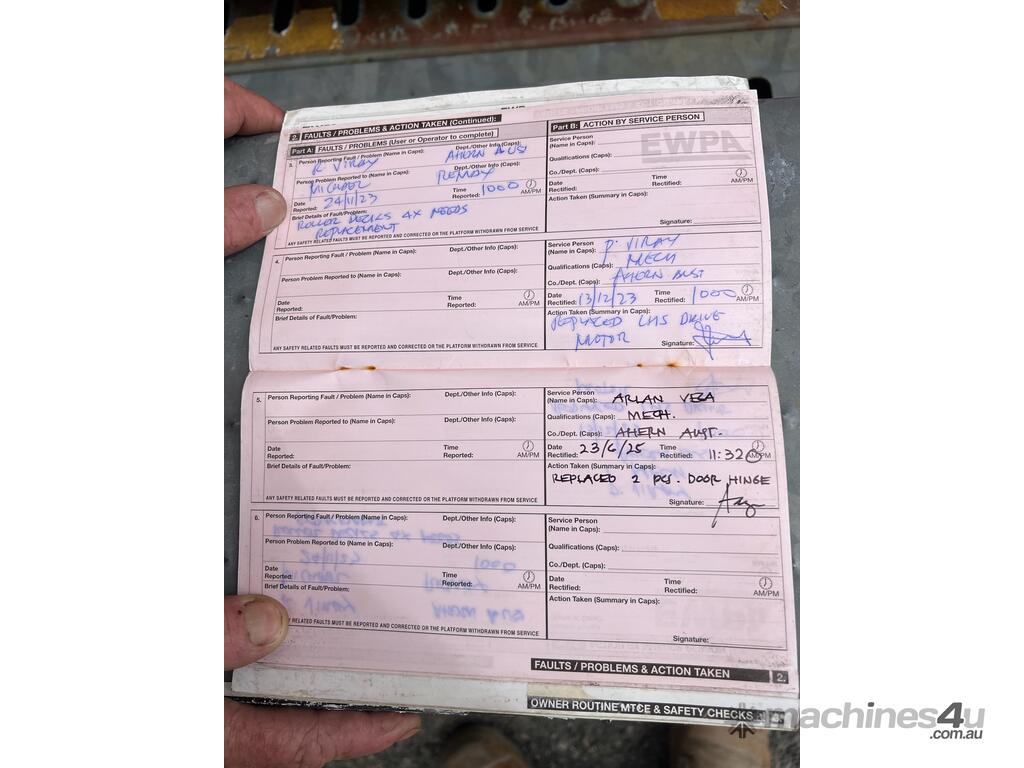 2. FAULTS / PROBLEMS & ACTION TAKEN (Continued):
Part A: FAULTS / PROBLEMS (User or Operator to complete)
3. Person Reporting Fault / Problem (Name in Caps): Dept./Other Info (Caps):
R VIRAY AHERN AUST
Person Problem Reported to (Name in Caps): Dept./Other Info (Caps):
MICHAEL
Date Reported: 24/11/23 Time Reported: 1000 AM/PM
Brief Details of Fault/Problem:
ROLLER DECKS 4X NEEDS
REPLACEMENT
ANY SAFETY RELATED FAULTS MUST BE REPORTED AND CORRECTED OR THE PLATFORM WITHDRAWN FROM SERVICE
Part B: ACTION BY SERVICE PERSON
EWPA
Service Person
(Name in Caps):
Qualifications (Caps):
Co./Dept. (Caps):
Date Rectified: Time Rectified: AM/PM
Action Taken (Summary in Caps):
Signature:
4. Person Reporting Fault / Problem (Name in Caps): Dept./Other Info (Caps):
Person Problem Reported to (Name in Caps): Dept./Other Info (Caps):
Date Reported: Time Reported: AM/PM
Brief Details of Fault/Problem:
ANY SAFETY RELATED FAULTS MUST BE REPORTED AND CORRECTED OR THE PLATFORM WITHDRAWN FROM SERVICE
Service Person
(Name in Caps): P. VIRAY
Qualifications (Caps): MECH
Co./Dept. (Caps): AHERN AUST
Date Rectified: 13/12/23 Time Rectified: 1000 AM/PM
Action Taken (Summary in Caps):
REPLACED LHS DRIVE
MOTOR Signature:
5. Person Reporting Fault / Problem (Name in Caps): Dept./Other Info (Caps):
Person Problem Reported to (Name in Caps): Dept./Other Info (Caps):
Date Reported: Time Reported: AM/PM
Brief Details of Fault/Problem:
ANY SAFETY RELATED FAULTS MUST BE REPORTED AND CORRECTED OR THE PLATFORM WITHDRAWN FROM SERVICE
Service Person
(Name in Caps): ARLAN VEGA
Qualifications (Caps): MECH.
Co./Dept. (Caps): AHERN AUST.
Date Rectified: 23/6/25 Time Rectified: 11:32 AM/PM
Action Taken (Summary in Caps):
REPLACED 2 PCS. DOOR HINGE
Signature:
6. Person Reporting Fault / Problem (Name in Caps): Dept./Other Info (Caps):
Person Problem Reported to (Name in Caps): Dept./Other Info (Caps):
Date Reported: Time Reported: AM/PM
Brief Details of Fault/Problem:
Y SAFETY RELATED FAULTS MUST BE REPORTED AND CORRECTED OR THE PLATFORM WITHDRAWN FROM SERVICE
Service Person
(Name in Caps):
Qualifications (Caps):
Co./Dept. (Caps):
Date Rectified: Time Rectified: AM/PM
Action Taken (Summary in Caps):
Signature:
FAULTS / PROBLEMS & ACTION TAKEN 2.
OWNER ROUTINE MTCE & SAFETY CHECKS
machines4u
.com.au